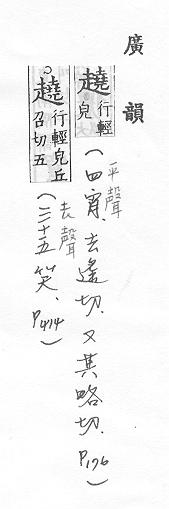 廣韻
趬 行輕皃
(平聲 四宵、去遙切、又其略切、P.176)
趬 行輕皃丘召切五
(去聲 三十五笑、P.414)